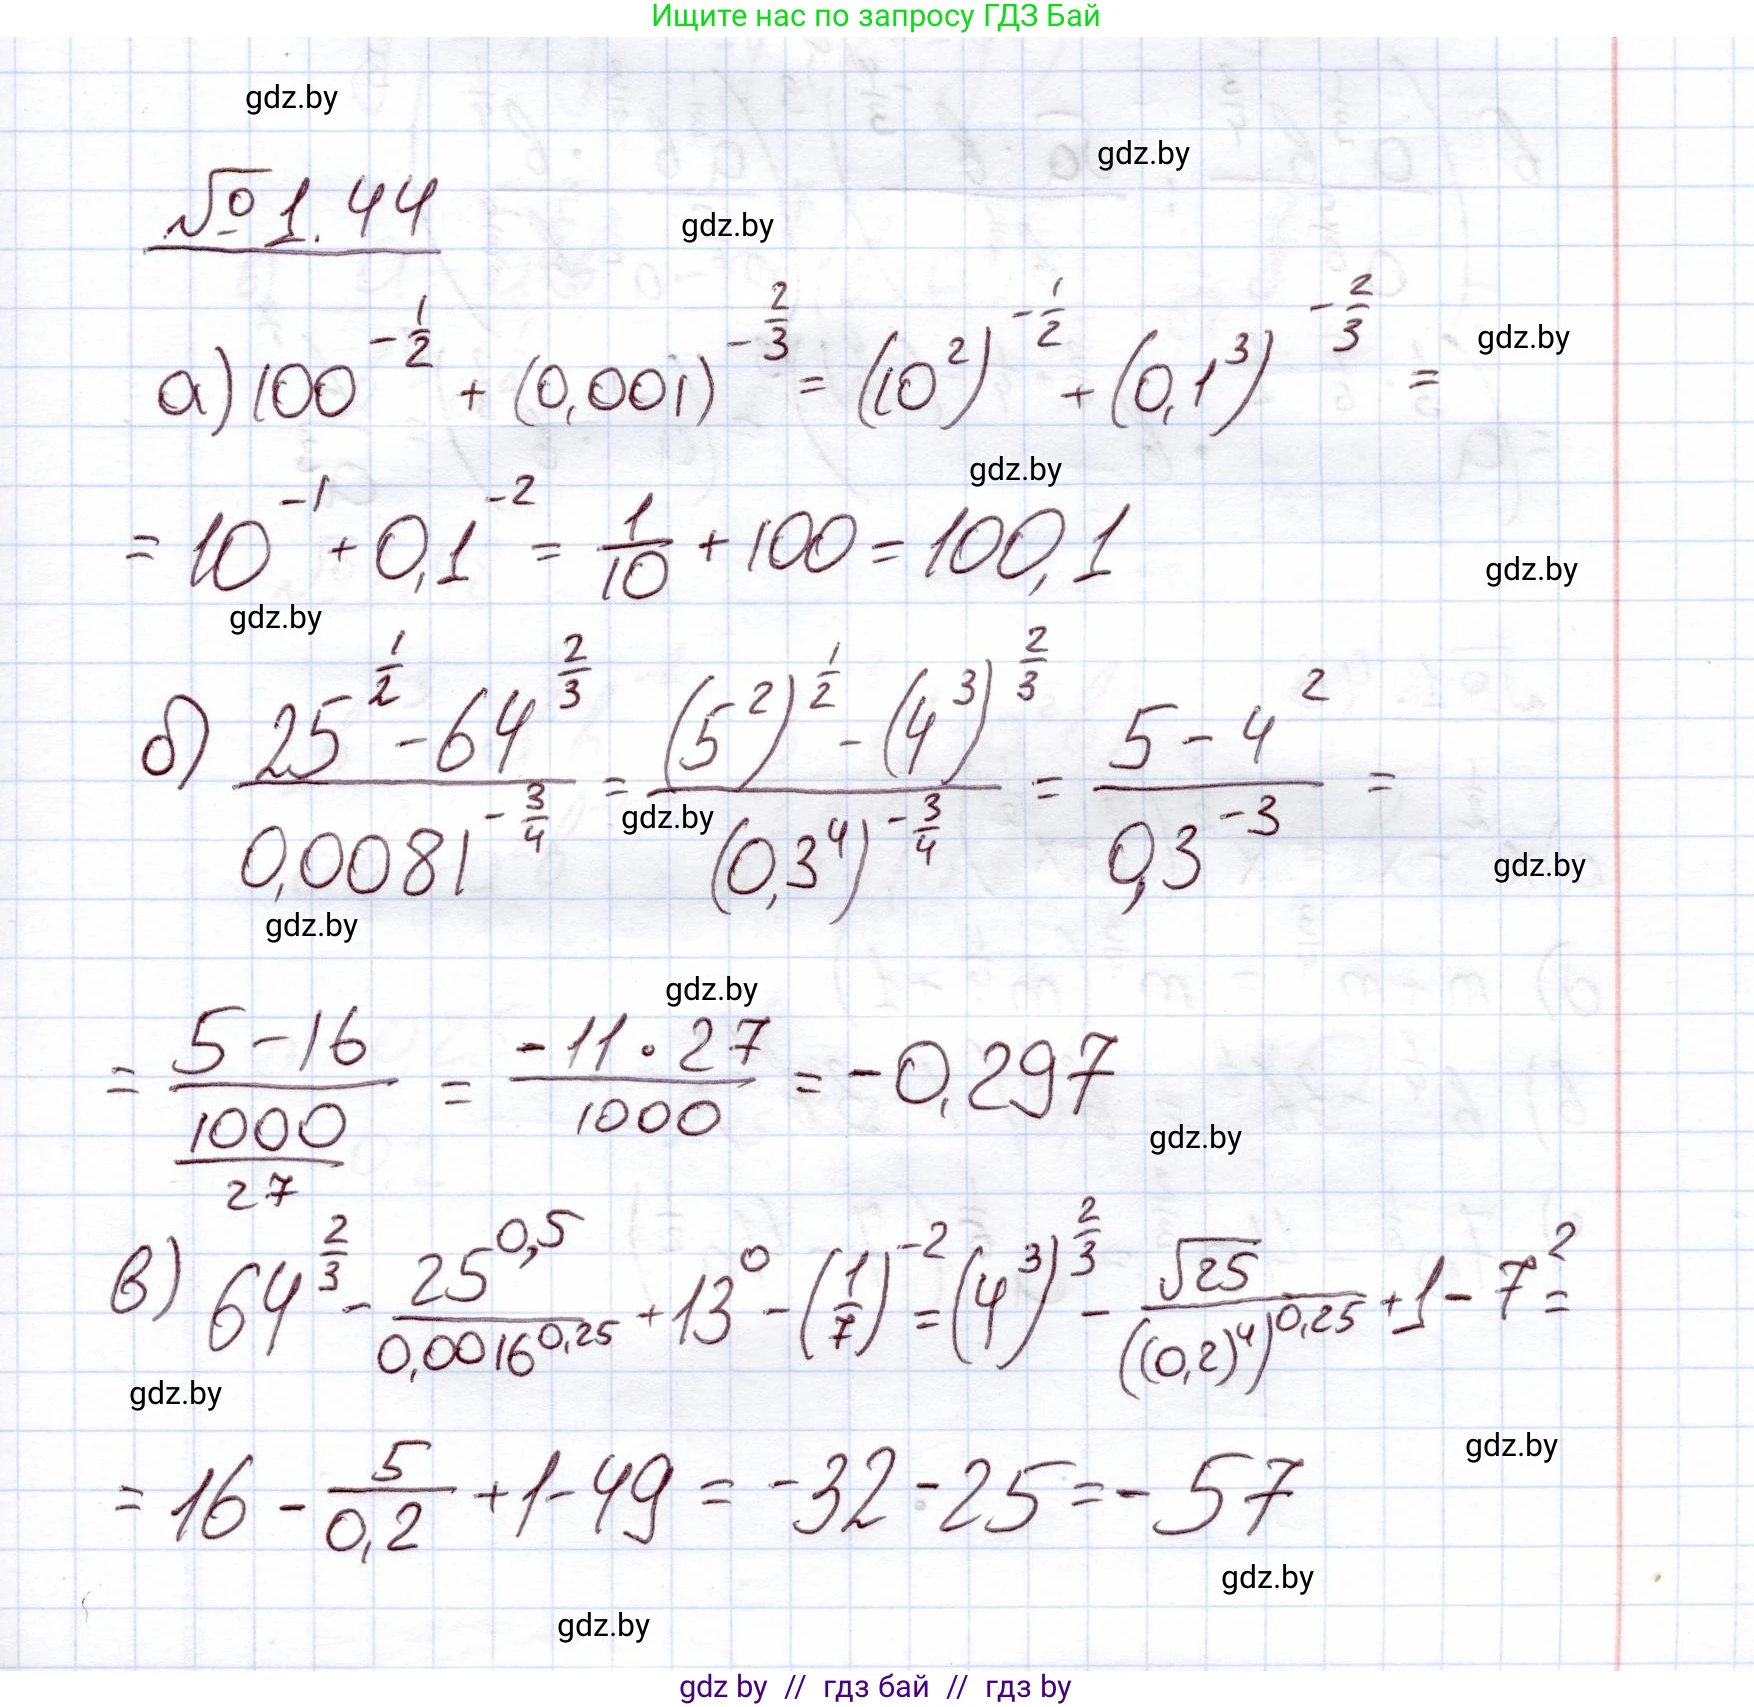 Ищите нас по запросу ГДЗ Бай
gdz.by
gdz.by
№ 1.44
gdz.by
а) 100^(-1/2) + (0,001)^(-2/3) = (10^2)^(-1/2) + (0,1^3)^(-2/3) =
gdz.by
gdz.by
= 10^(-1) + 0,1^(-2) = 1/10 + 100 = 100,1
gdz.by
gdz.by
б) (25^(1/2) - 64^(2/3))/(0,0081^(-3/4)) = ((5^2)^(1/2) - (4^3)^(2/3))/((0,3^4)^(-3/4)) = (5 - 4^2)/(0,3^(-3)) =
gdz.by
gdz.by
gdz.by
gdz.by
= (5 - 16)/(1000/27) = (-11 · 27)/1000 = -0,297
gdz.by
в) 64^(2/3) - 25^(0,5)/0,0016^(0,25) + 13^0 - (1/7)^(-2) = (4^3)^(2/3) - √25/((0,2)^4)^(0,25) + 1 - 7^2 =
gdz.by
gdz.by
= 16 - 5/0,2 + 1 - 49 = -32 - 25 = -57
gdz.by
gdz.by
gdz by // гдз бай // гдз by